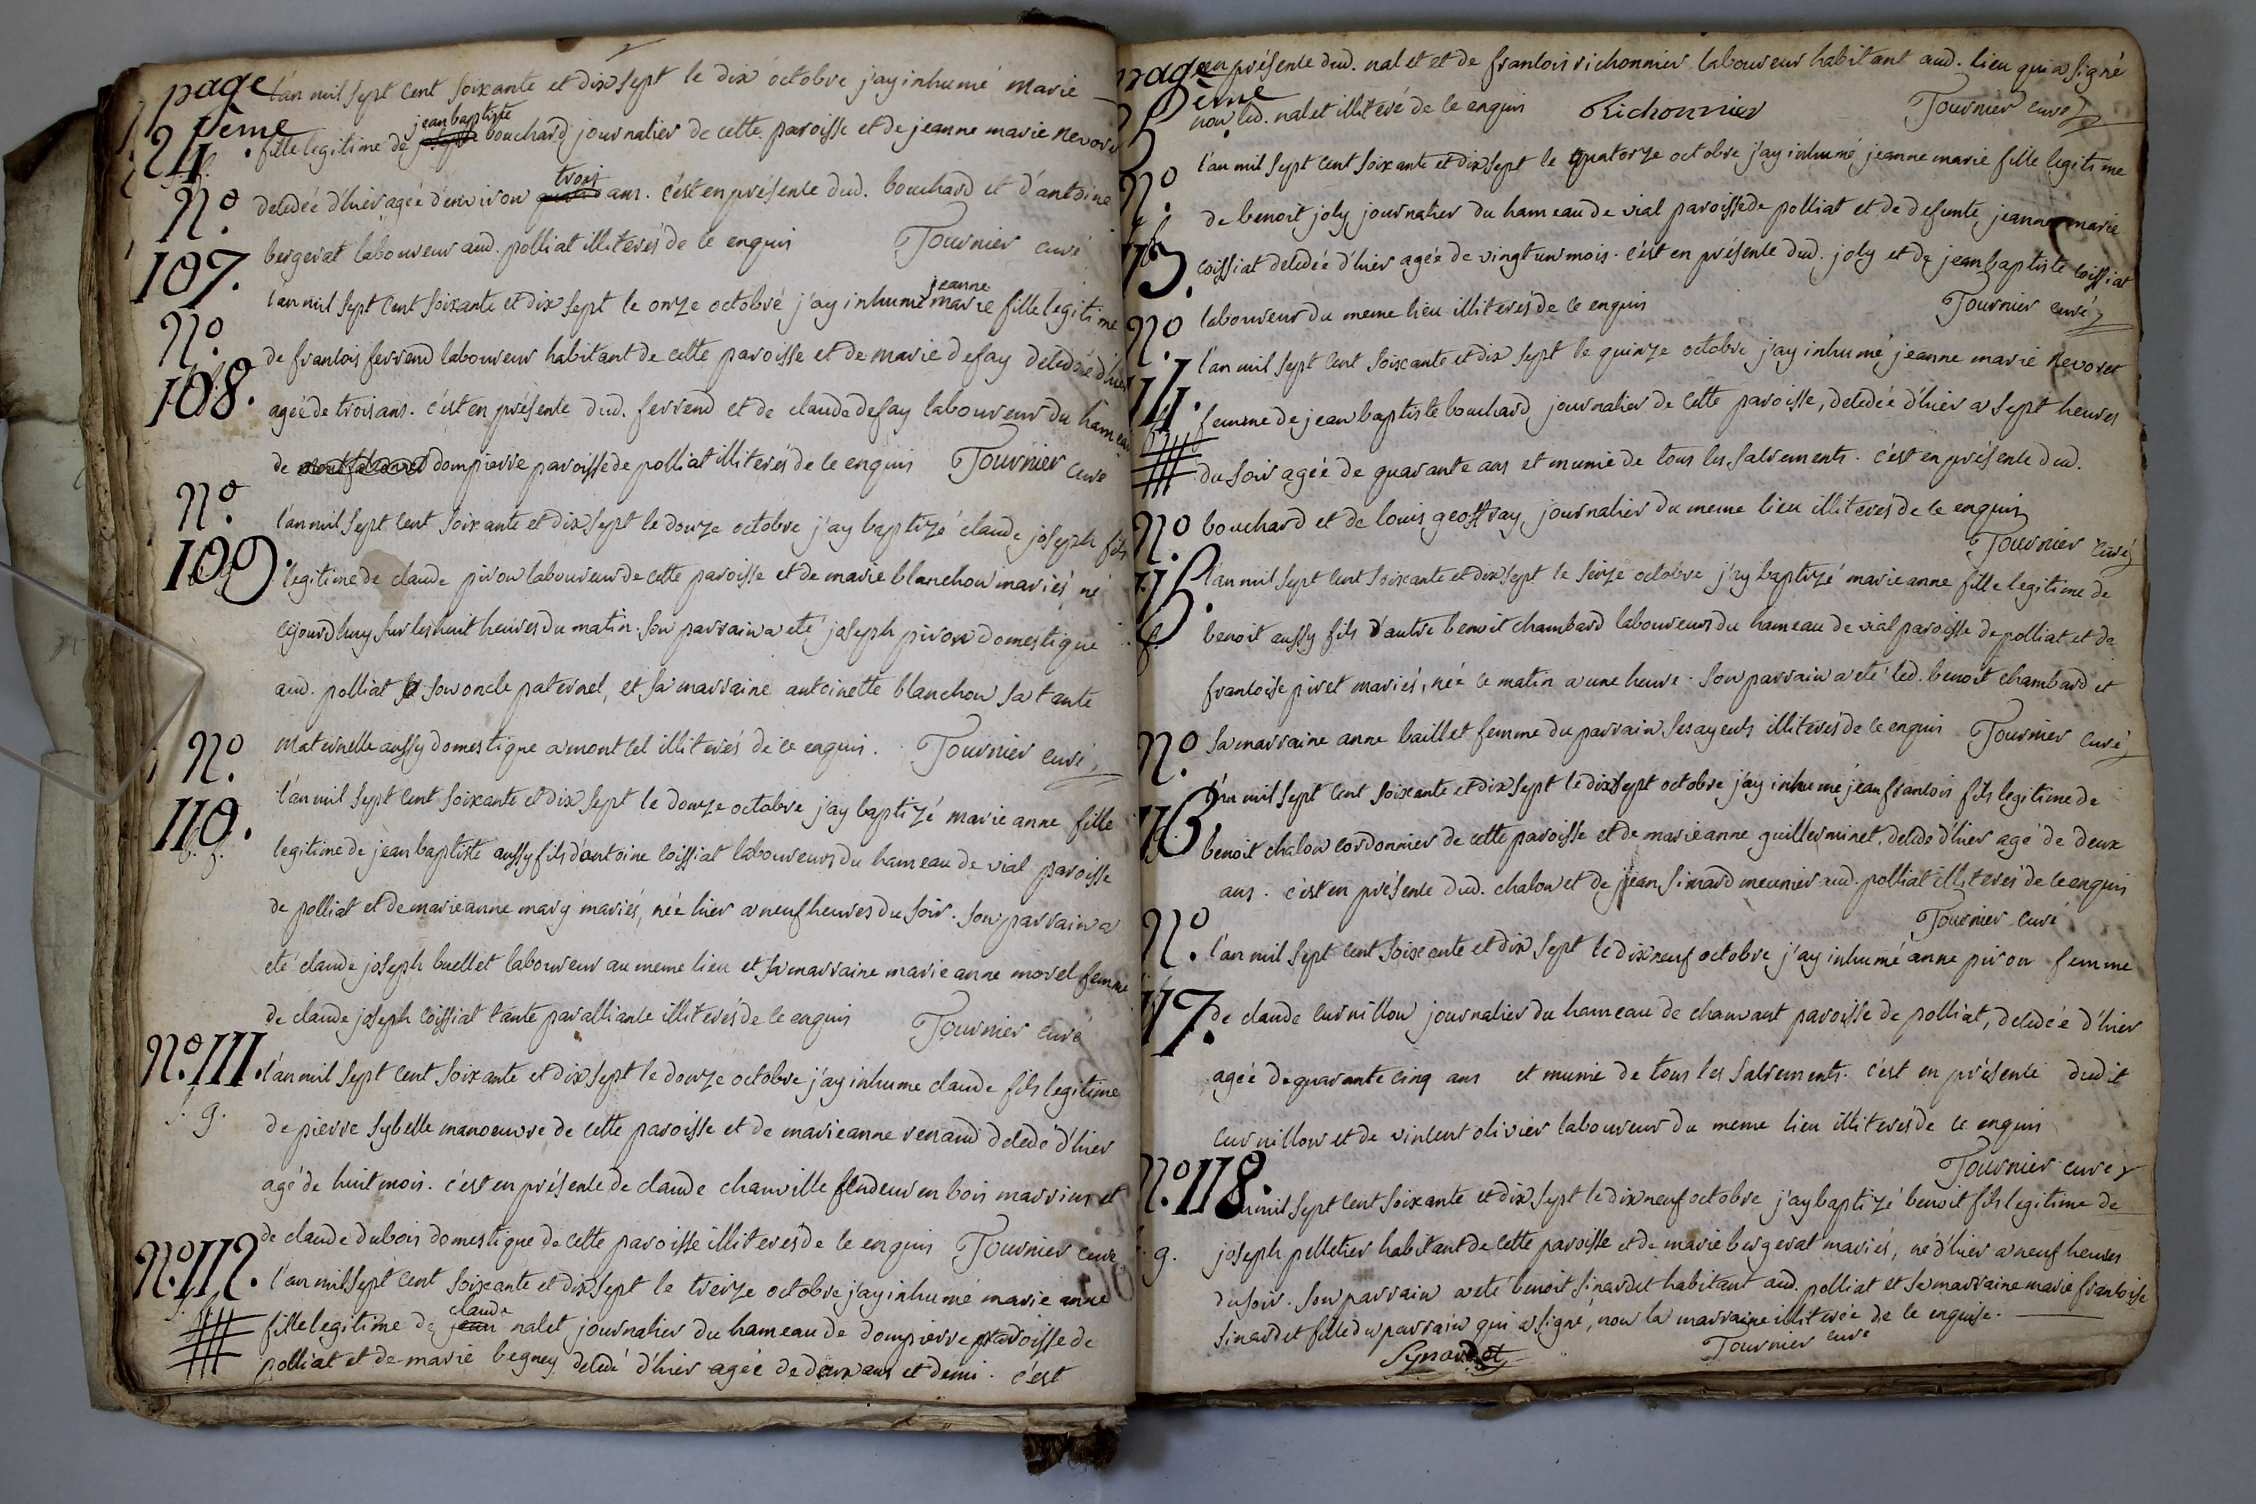 page
24 ème
l'an mil sept cent soixante et dix sept le dix octobre j'ay inhumé marie
jean baptiste
fille legitime de joseph bouchard journalier de cette paroisse et de jeanne marie nevoret
trois
decedée d'hier agée d'environ ans. c'est en présence dud. bouchard et d'antoine
bergerat laboureur aud. polliat illiterés de ce enquis Tournier curé
N° 107.
jeanne
l'an mil sept cent soixante et dix sept le onze octobre j'ay inhumé marie fille legitime
de francois ferrend laboureur habitant de cette paroisse et de marie defay decedée d'hier
agée de trois ans. c'est en présence dud. ferrend et de claude defay laboureur du hameau
de dompierre paroisse de polliat illiterés de ce enquis Tournier curé
N° 108.
l'an mil sept cent soixante et dix sept le douze octobre j'ay baptizé claude joseph fils
legitime de claude piron laboureur de cette paroisse et de marie blanchon mariés, né
cejourdhuy sur les huit heures du matin. son parrain a eté joseph piron domestique
aud. polliat son oncle paternel, et sa marraine antoinette blanchon sa tante
maternelle aussy domestique a montcel illiterés de ce enquis. Tournier curé
N° 109.
l'an mil sept cent soixante et dix sept le douze octobre j'ay baptizé marie anne fille
legitime de jean baptiste aussy fils d'antoine coissiat laboureurs du hameau de vial paroisse
de polliat et de marie anne mary mariés, née hier a neuf heures du soir. son parrain a
eté claude joseph buellet laboureur au meme lieu et sa marraine marie anne morel femme
de claude joseph coissiat tante par alliance illiterés de ce enquis Tournier curé
N° 110.
g.
l'an mil sept cent soixante et dix sept le douze octobre j'ay inhumé claude fils legitime
de pierre sybelle manoeuvre de cette paroisse et de marie anne renaud decedé d'hier
agé de huit mois. c'est en présence de claude chanville fendeur en bois marrien et
de claude dubois domestique de cette paroisse illiterés de ce enquis Tournier curé
N° 111.
g.
l'an mil sept cent soixante et dix sept le treize octobre j'ay inhumé marie anne
claude
fille legitime de jean nalet journalier du hameau de dompierre paroisse de
polliat et de marie begney decedé d'hier agée de deux ans et demi. c'est
N° 112.
page
ème
en présence dud. nalet et de francois richonnier laboureur habitant aud. lieu qui a signé
non led. nalet illiteré de ce enquis Richonnier Tournier curé
l'an mil sept cent soixante et dix sept le quatorze octobre j'ay inhumé jeanne marie fille legitime
de benoit joly journalier du hameau de vial paroisse de polliat et de defunte jeanne marie
coissiat decedée d'hier agée de vingt un mois. c'est en présence dud. joly et de jean baptiste coissiat
laboureur du meme lieu illiterés de ce enquis Tournier curé
N° 113.
l'an mil sept cent soixante et dix sept le quinze octobre j'ay inhumé jeanne marie nevoret
femme de jean baptiste bouchard journalier de cette paroisse, decedée d'hier a sept heures
du soir agée de quarante ans et munie de tous les sacrements. c'est en présence dud.
bouchard et de louis geoffray journalier du meme lieu illiterés de ce enquis
Tournier curé
N° 114.
l'an mil sept cent soixante et dix sept le seize octobre j'ay baptizé marie anne fille legitime de
benoit aussy fils d'autre benoit chambard laboureurs du hameau de vial paroisse de polliat et de
francoise piret mariés, née ce matin a une heure. son parrain a eté led. benoit chambard et
sa marraine anne baillet femme du parrain ses ayeuls illiterés de ce enquis Tournier curé
N° 115.
l'an mil sept cent soixante et dix sept le dix sept octobre j'ay inhumé jean francois fils legitime de
benoit chalon cordonnier de cette paroisse et de marie anne guillerminet, decedé d'hier agé de deux
ans. c'est en présence dud. chalon et de jean simard meunier aud. polliat illiterés de ce enquis
Tournier curé
N° 116
l'an mil sept cent soixante et dix sept le dix neuf octobre j'ay inhumé anne piron femme
de claude curnillon journalier du hameau de chanvant paroisse de polliat, decedée d'hier
agée de quarante cinq ans et munie de tous les sacrements. c'est en présence dudit
curnillon et de vincent olivier laboureur du meme lieu illiterés de ce enquis
Tournier curé
N° 117.
l'an mil sept cent soixante et dix sept le dix neuf octobre j'ay baptizé benoit fils legitime de
joseph pelletier habitant de cette paroisse et de marie bergerat mariés, né d'hier a neuf heures
du soir. son parrain a eté benoit sinardet habitant aud. polliat et sa marraine marie francoise
sinardet fille du parrain qui a signé, non la marraine illiterée de ce enquise.
Synardet Tournier curé
N° 118.
g.